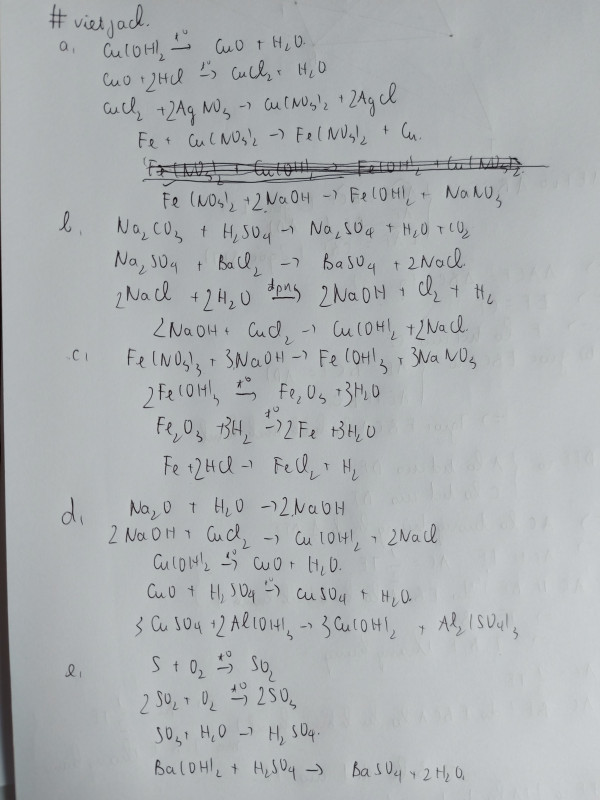 # vietjack.
a, Cu(OH)₂ –t°→ CuO + H₂O.
CuO + 2HCl –t°→ CuCl₂ + H₂O
CuCl₂ + 2AgNO₃ → Cu(NO₃)₂ + 2AgCl
Fe + Cu(NO₃)₂ → Fe(NO₃)₂ + Cu.
Fe(NO₃)₂ + Cu(OH)₂ → Fe(OH)₂ + Cu(NO₃)₂.
Fe(NO₃)₂ + 2NaOH → Fe(OH)₂ + NaNO₃
b, Na₂CO₃ + H₂SO₄ → Na₂SO₄ + H₂O + CO₂
Na₂SO₄ + BaCl₂ → BaSO₄ + 2NaCl.
2NaCl + 2H₂O –dpnc→ 2NaOH + Cl₂ + H₂
2NaOH + CuCl₂ → Cu(OH)₂ + 2NaCl.
c, Fe(NO₃)₃ + 3NaOH → Fe(OH)₃ + 3NaNO₃
2Fe(OH)₃ –t°→ Fe₂O₃ + 3H₂O
Fe₂O₃ + 3H₂ –t°→ 2Fe + 3H₂O
Fe + 2HCl → FeCl₂ + H₂
d, Na₂O + H₂O → 2NaOH
2NaOH + CuCl₂ → Cu(OH)₂ + 2NaCl
Cu(OH)₂ –t°→ CuO + H₂O.
CuO + H₂SO₄ –t°→ CuSO₄ + H₂O.
3CuSO₄ + 2Al(OH)₃ → 3Cu(OH)₂ + Al₂(SO₄)₃
e, S + O₂ –t°→ SO₂
2SO₂ + O₂ –t°→ 2SO₃
SO₃ + H₂O → H₂SO₄.
Ba(OH)₂ + H₂SO₄ → BaSO₄ + 2H₂O.